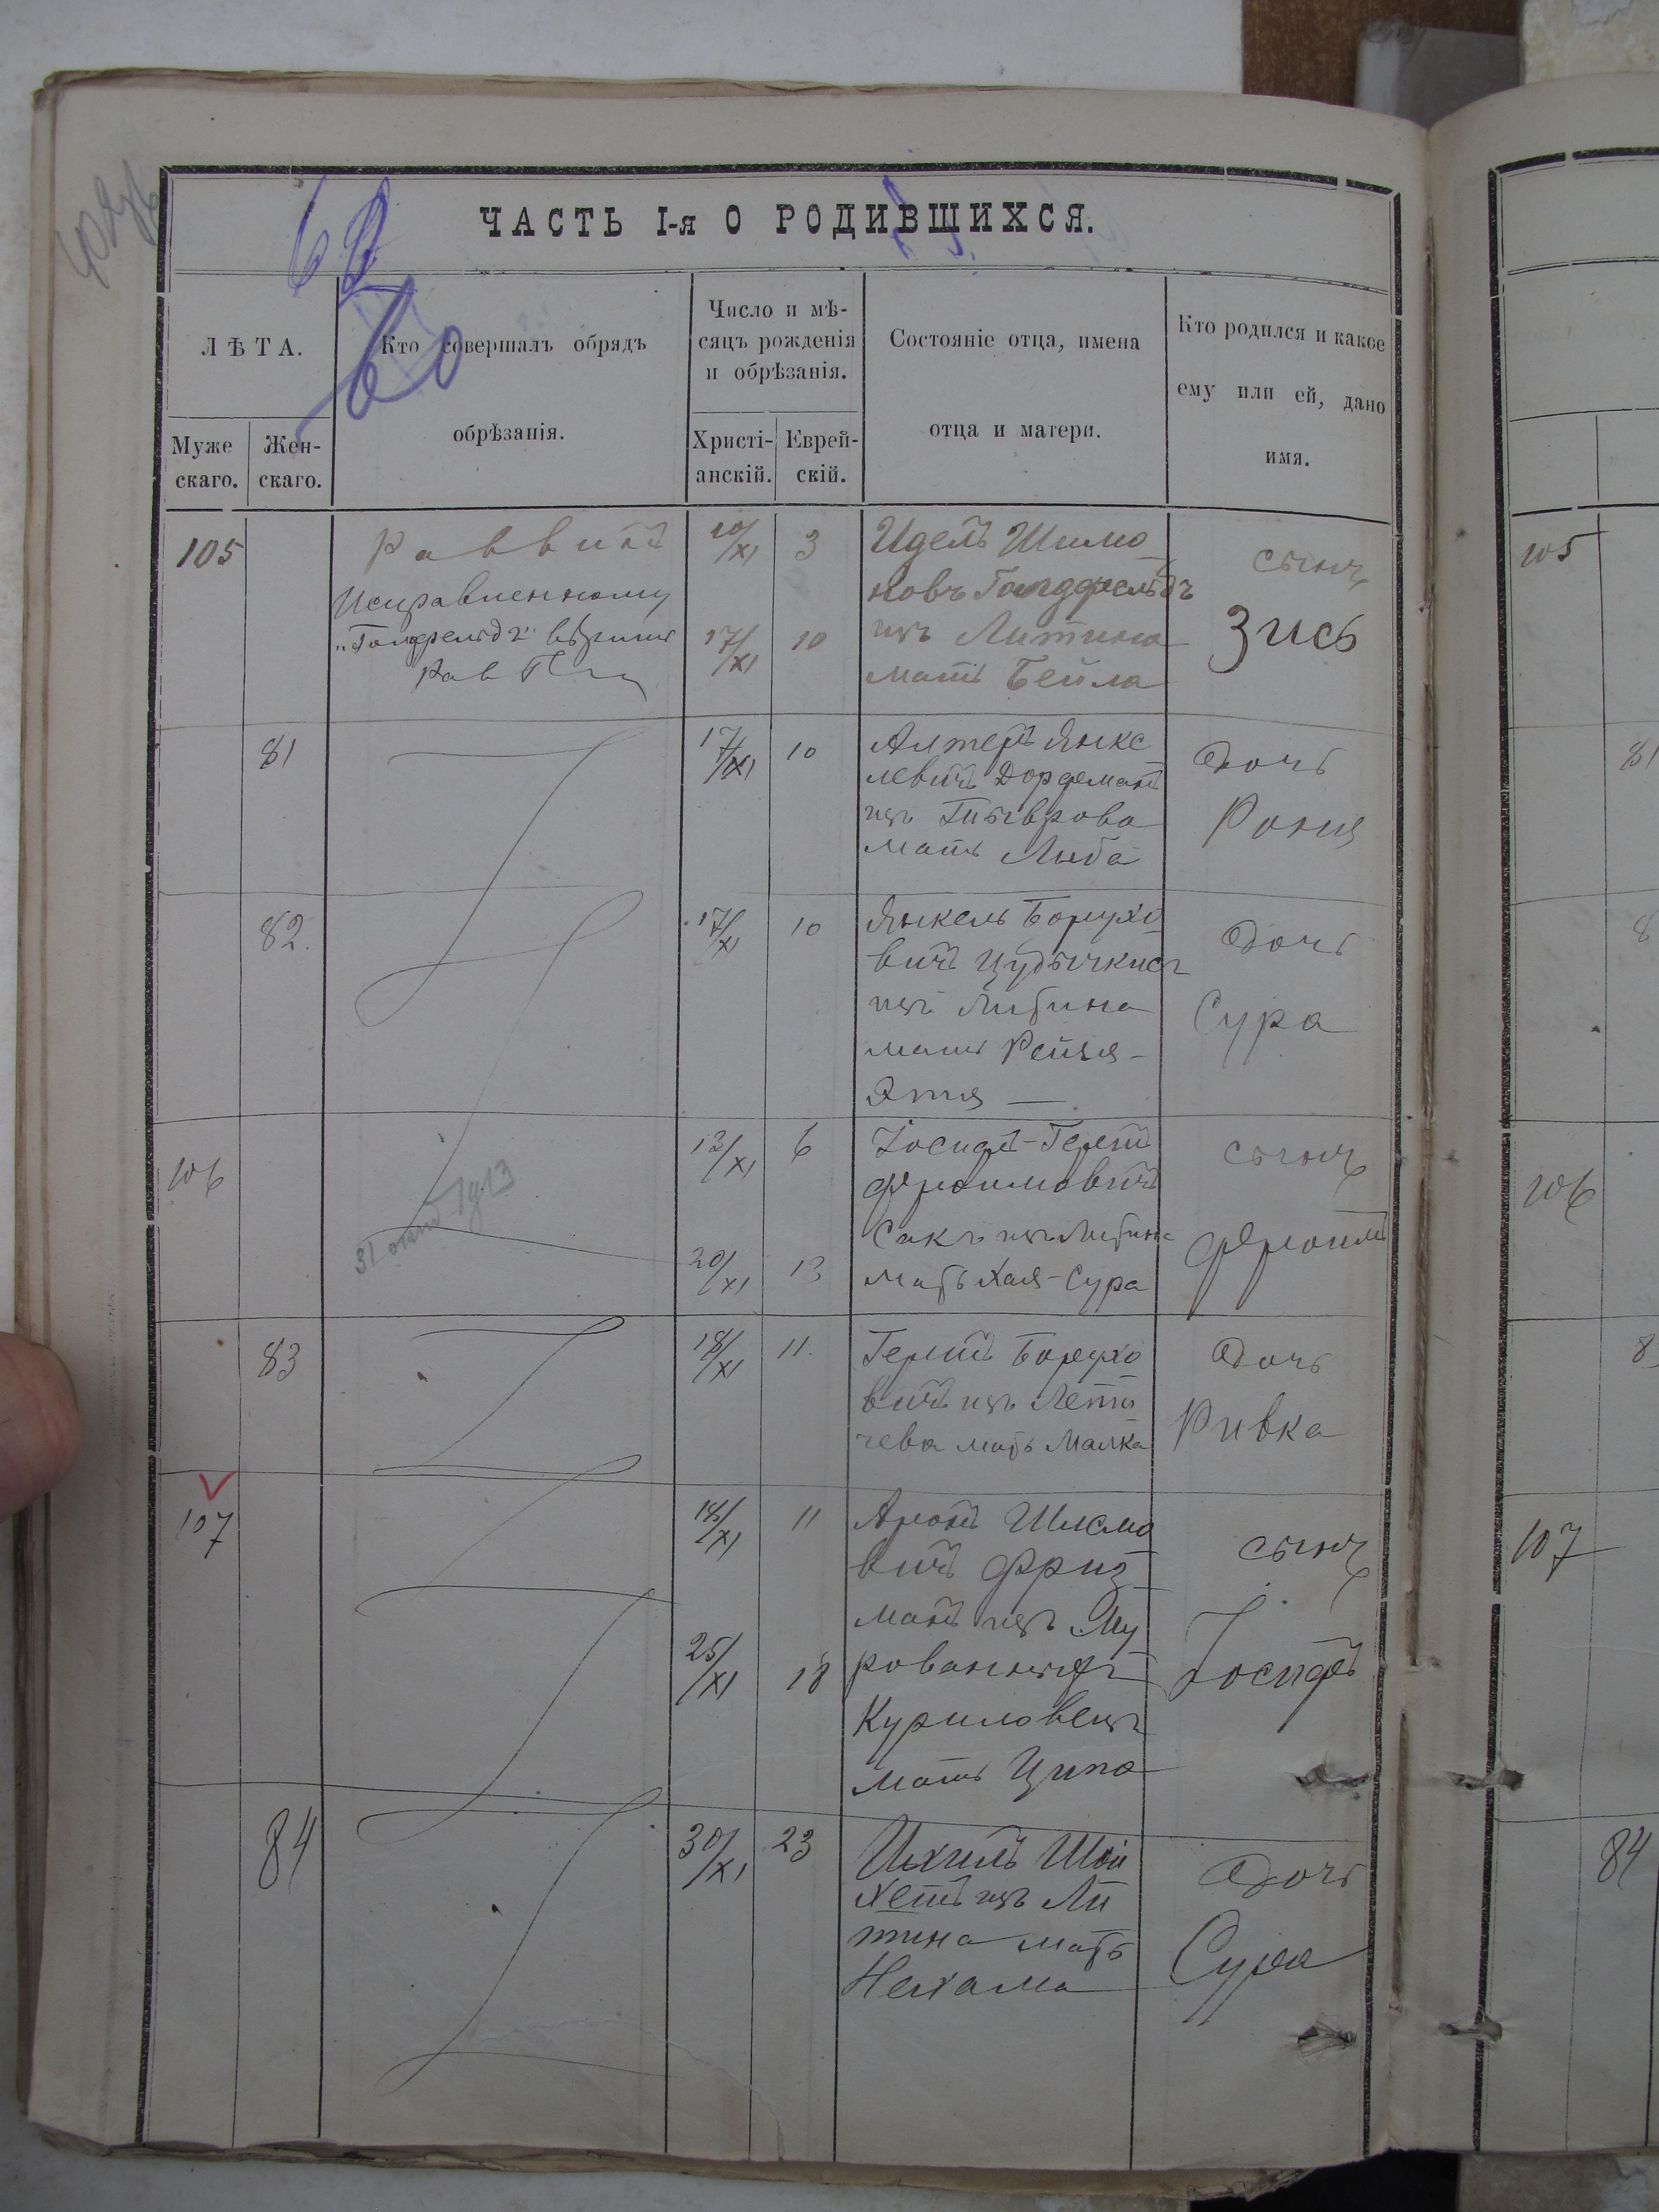 ЧАСТЬ I-я О РОДИВШИХСЯ.
ЛѢТА.
Муже
скаго.
Жен-
скаго.
Кто совершалъ обрядъ
обрѣзанія.
Число и мѣ-
сяцъ рожденія
и обрѣзанія.
Христі-
анскій.
Еврей-
скій.
Состояніе отца, имена
отца и матери.
Кто родился и какое
ему или ей, дано
имя.
105
Раввинъ
Исправленному
"Голдфельдъ" вѣрить
Рав
10/XI 3
17/XI 10
Идель Шимо
новъ Голдфельдъ
изъ Литина
мать Бейла
сынъ
Зись
105
81
17/XI 10
Алтеръ Янке
левичъ Дордеманъ
изъ Тыврова
мать Лыба
дочь
Рокля
81
82.
17/XI 10
Янкель Борухо
вичъ
изъ Литина
мать Рейзя-
Этля —
дочь
Сура
8
106
13/XI 6
20/XI 13
Іосифъ-Гершъ
Фроимовичъ
Сакъ изъ Литина
мать Хая-Сура
сынъ
Фроимъ
106
83
18/XI 11.
Гершъ Борухо
вичъ изъ Лети
чева мать Малка
дочь
Ривка
8
107
18/XI 11
25/XI 18
Аронъ Шлемо
вичъ Фриз
манъ изъ Му
рованныхъ
Куриловецъ
мать Ципа
сынъ
Іосифъ
107
84
30/XI 23
Ихилъ Шой
хетъ изъ Ли
тина мать
Нехама
дочь
Сура
84